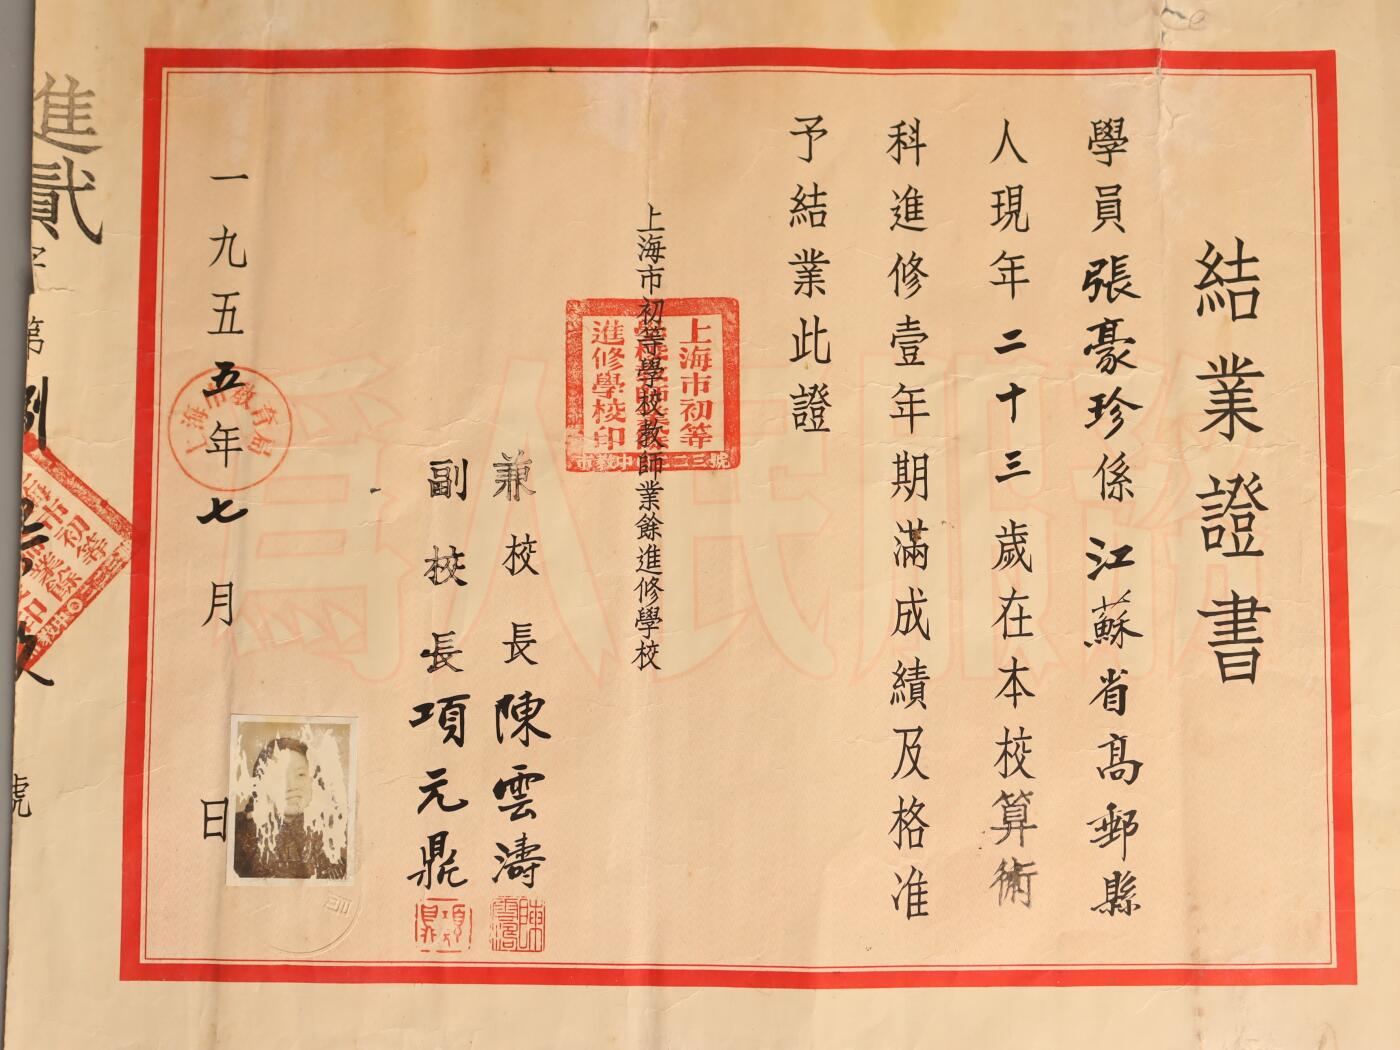 結業證書
學員張豪珍係江蘇省高郵縣
人現年二十三歲在本校算術
科進修壹年期滿成績及格准
予結業此證
上海市初等學校教師業餘進修學校
上海市初等
進修學校印
兼校長陳雲濤
陳雲濤
副校長項元鼎
項元鼎
一九五五年七月 日
上海市教育局
進貳字第
號
為人民服務